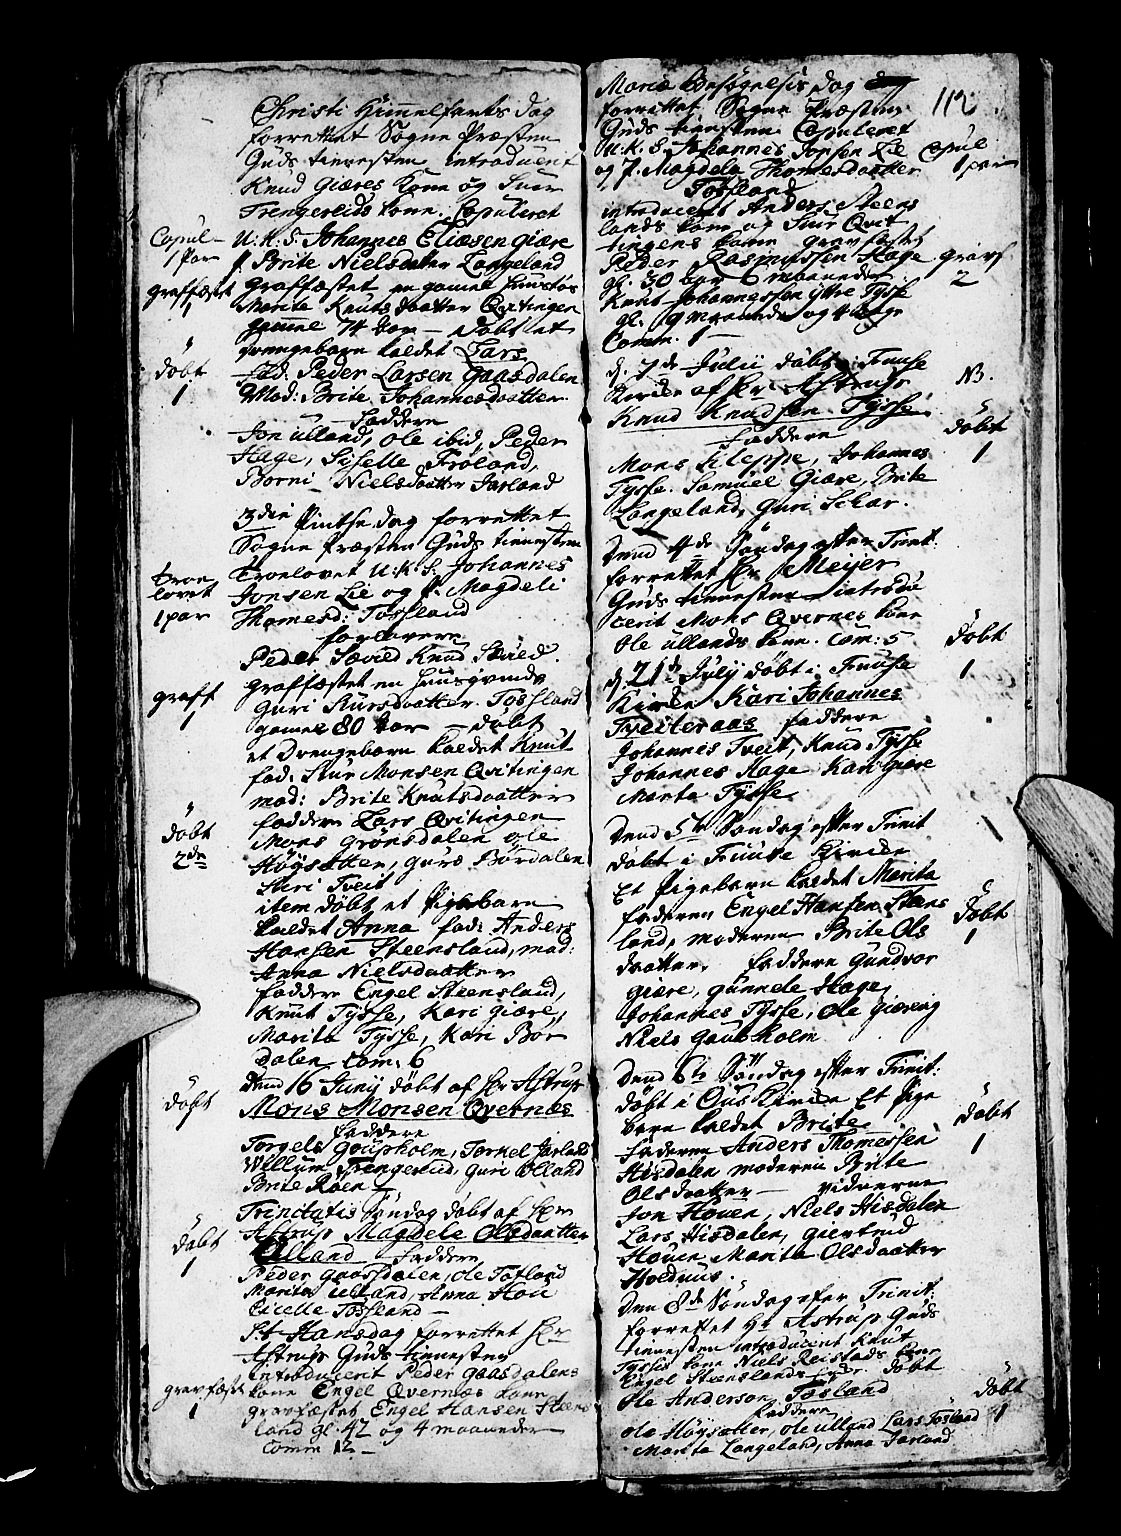 Christi Himmelfarts dag
forrettet Sogne Præsten
Guds tienesten introduceret
Knud Giæres Kone og Siur
Trengereids kone. Copuleret
Copul- U: k: S: Johannes Eliæsen Giære
1 Par P. Brite Nielsdatter Langeland
graffæstet graffæstet en gamel
1 Marite Knuts daatter Qvitingen
gamle 74 Aar – døbt et
drengebarn kaldet Lars
døbt fad: Peder Larsen Gaasdalen
1 Mod: Brite Johannesdaatter
faddere
Jon ulland, ole ibid, Peder
Hage, Siselle Frøland,
Borni Nielsdaatter Jarland
3die Pintse dag forrettet
Sogne Præsten Guds tienesten
troe troelovet U: k: S: Johannes
lovet Jonsen Lie og P. Magdeli
1 par Thomesd: Tosseland
forlovere
Peder Sævid Knud Sævid
graff graffæstet en Huusqvinde
1 Guri Siursdaatter Tossland
gamel 80 Aar – døbt
et Drengebarn kaldet Knut
fad: Siur Monsen Qvitingen
mod: Brite Knutsdaatter
døbt faddere Lars Qvitingen
2de Mons Grønsdalen ole
Høysætter, guro Børdalen
Siri Tveit
item døbt et Pigebarn
kaldet Anna fad: Anders
Hansen Steensland, mod:
Anna Nielsdaatter
faddere Engel Steensland,
Knut Tysse, Kari Giære,
Marita Tysse, Kari Bør
dalen Com: 6
Dend 16 Junij døbt af Hr Astrup
døbt Mons Monsen Qvernes
faddere
Torgels Goupholm, Torkel Jarland
Willum Trengereid, Guri Ulland
Brite Røen
Trinitatis Søndag døbt af Hr
døbt Astrup Magdele Olsdaatter
1 Ulland faddere
Peder Gaasdalen, ole Tosland
Marita ulland, Anna Hou
Cicelle Tossland –
St Hansdag forrettet Hr
Astrup Guds tienesten
introducerit Peder Gaasdalens
gravfæst kone Engel Qvernæs kone
1 gravfæstet Engel Hansen Steens
land gl. 42 og 4 maaneder
Comm 12 –
Mariæ Besøgelsis dag
112
forrettet Sogne Præsten
Guds tienesten Copuleret
U: k: S. Johannes Jonsen Lie Copul
og P. Magdela Thomesdaatter 1 par
Tossland
introducerit Anders Steens
lands kone og Siur Qvit
tingens kone gravfæstet
Peder Rasmussen Hage gravf
gl. 30 Aar 6 maaneder 2
Knut Johannessen yttre Tysse
gl. 9 Maaneder og 4 Uge
Comm. 1 –
d. 7de Julii døbt i Fuuse
Kirken af Hr Astrup NB.
Knud Knudsen Tysse
faddere døbt
Mons Kleppe, Johannes 1
Tysse. Samuel Giære, Brite
Langeland, Guri Schar.
Dend 4de Søndag efter Trinit:
forrettet Hr Meijer
Guds tienesten introdu
cerit Mons Qvernes kone
Ole ullands kone. Com: 5 døbt
d. 21de July døbt i Fuuse 1
Kirke Kari Johannes
Tveiteraas faddere
Johannes Tveit, Knud Tysse
Johannes Hage Kari Giære
Marta Tysse
Dend 5te Søndag efter Trinit
døbt i Fuuse Kirke
Et Pigebarn kaldet Marita
faderen Engel Hansen Steens døbt
land, moderen Brite Ols 1
daatter. faddere Gundvor
giære, gunnele Hage,
Johannes Tysse, Ole Giære og
Niels Goubholm
Dend 6te Søndag efter Trinit:
døbt i Ous Kirke Et Pige
barn kaldet Brite døbt
Faderen Anders Thomessen 1
Hisdalen moderen Brite
Olsdaatter – vidnerne
Jon Houen, Niels Hisdalen
Lars Hisdalen, giertrud
Houen Marita Olsdaatter
Holdhuus.
Den 8de Søndag efter Trinit:
forrettet Hr Astrup Guds
tienesten introducerit Knut
Tysses kone Niels Reistads kone
Engel Steenslands døbt
Ole Andersen Tosland døbt
faddere 1
ole Høysætter, ole ulland Lars Tosland
Marita Langeland, Anna Jarland